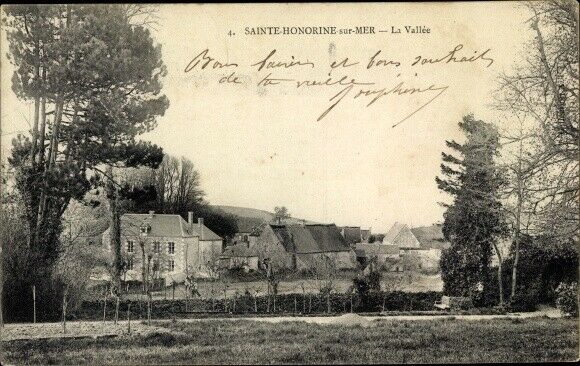 4. SAINTE-HONORINE-SUR-MER — La Vallée
Bons baisers et bons souhaits
de ta vieille
Joséphine